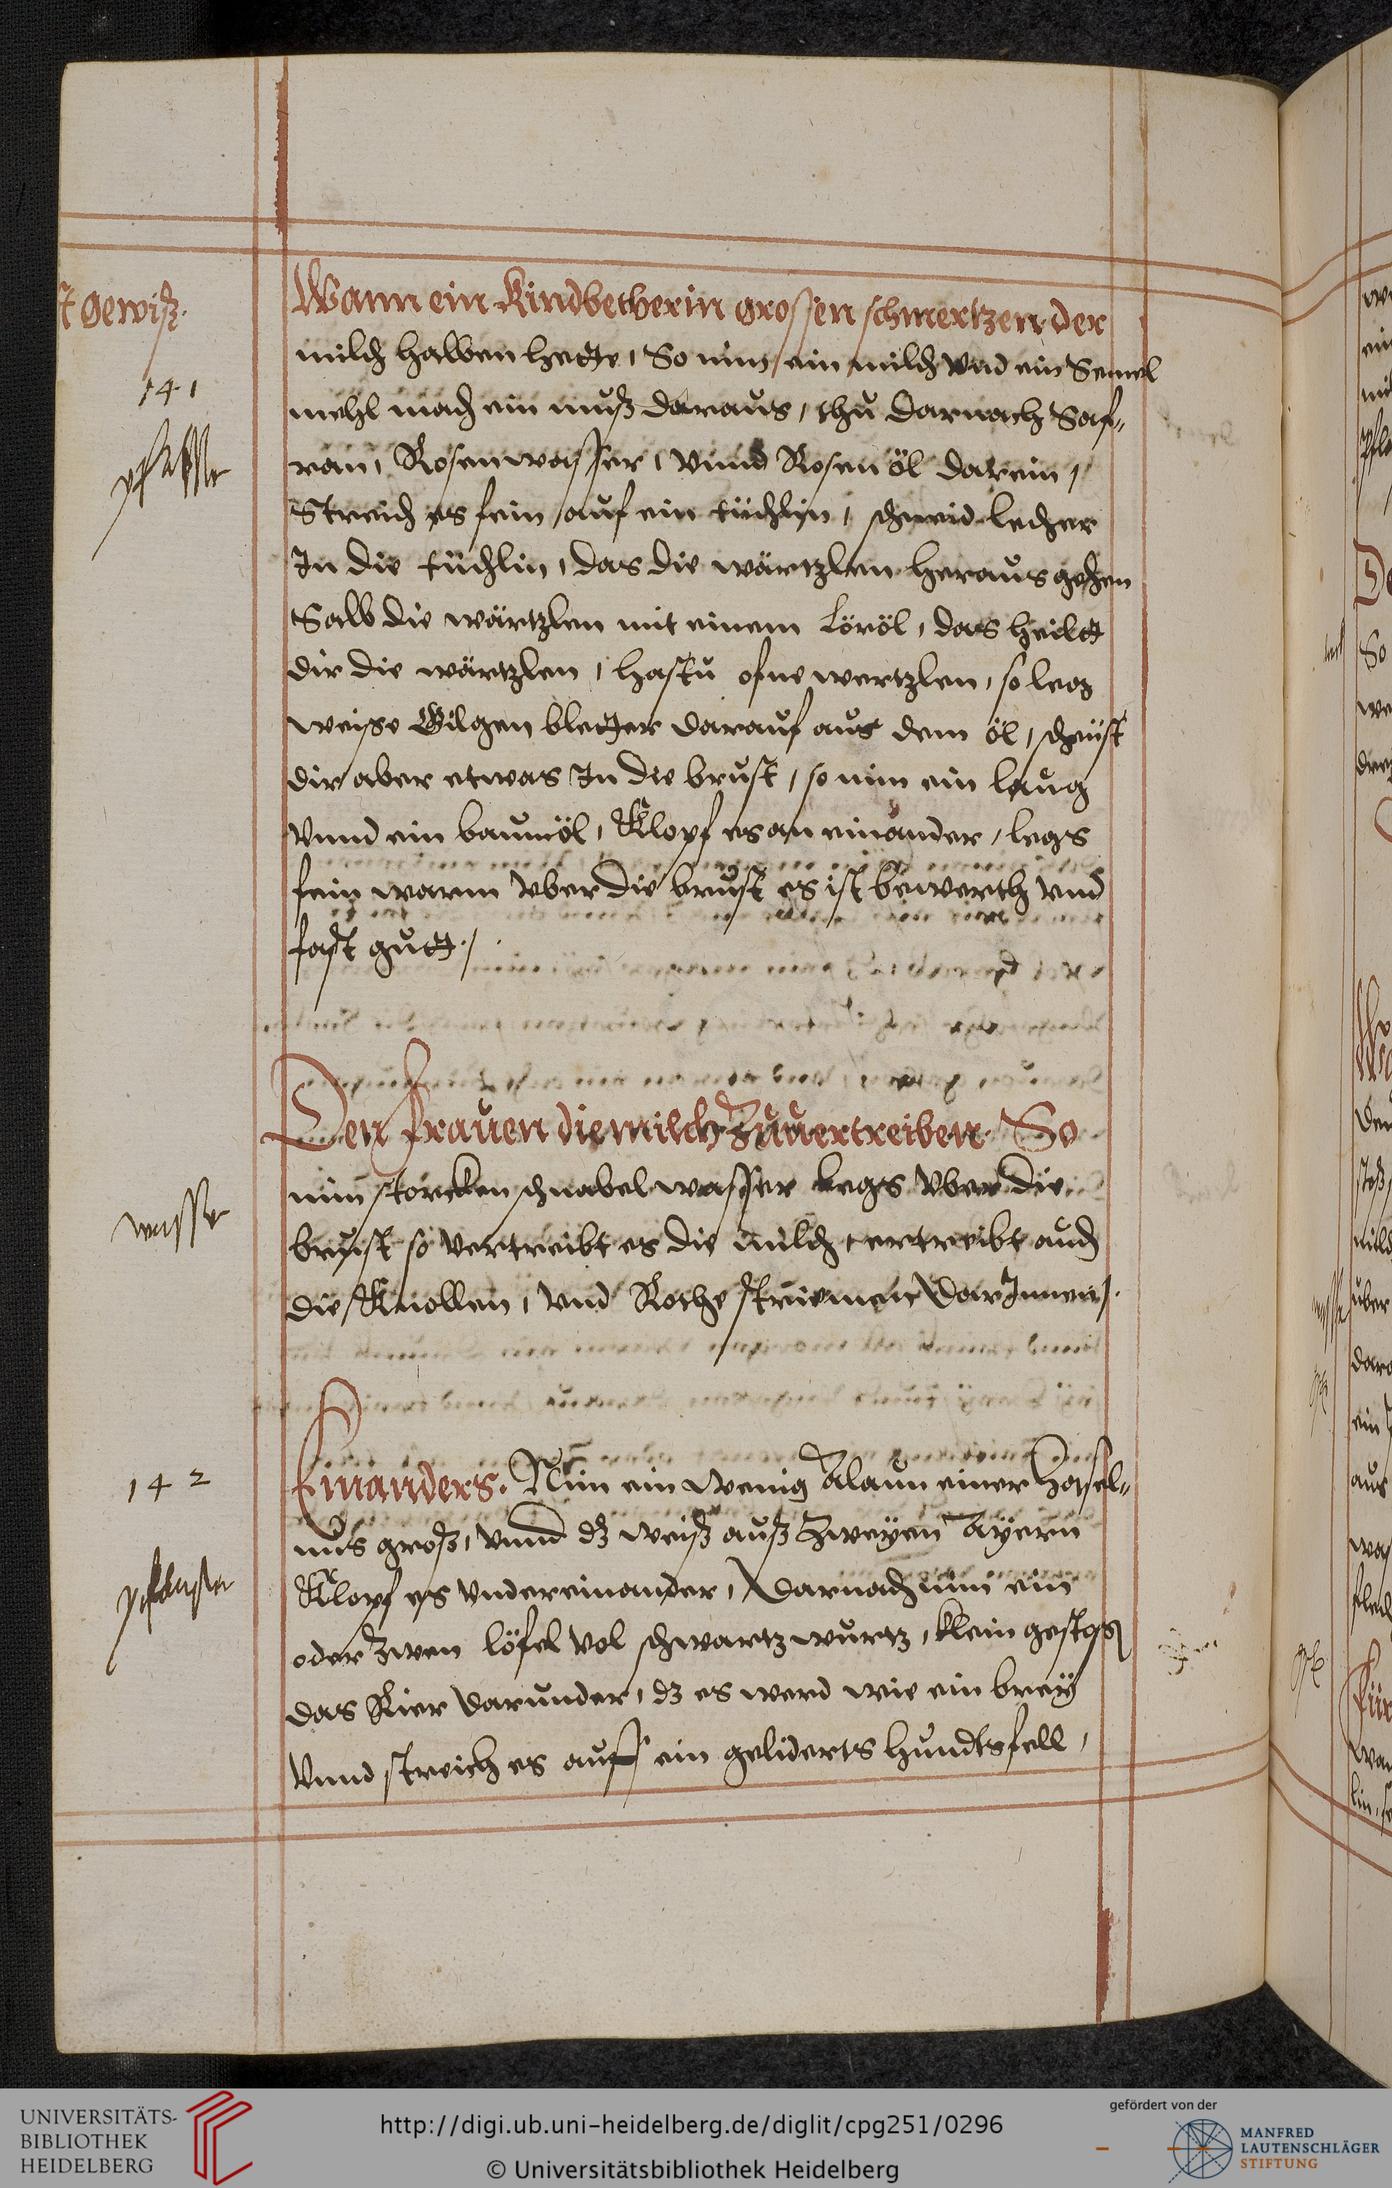 Gewiß.
Wann ein Kindbetherin grossen schmertzen der
milch halben hette, So nim ein milch vnd ein Semel
mehl mach ein muß daraus, thu darnach Saf„
ran, Rosenwasser, vnnd Rosen öl darein,
Streich es fein auf ein tüchlin, schneid lecher
In die tüchlin, das die wärtzlen heraus gehen
Salb die wärtzlen mit einem Löröl, das heilet
dir die wärtzlen, hastu ofne wertzlen, so leg
weisse Gilgen bletter darauf aus dem öl, scheüst
dir aber etwas In die brust, so nim ein laug
vnnd ein baumöl, Klopf es an einander, legs
fein warm vber die brust es ist bewerth vnd
fast gutt./.
141
Den frauen die milch Zuuertreiben. So
nim storcken schnabel wasser legs vber die
brüst so vertreibt es die milch vertreibt auch
die Knollen, vnd Rothe striemen darInnen/.
wasser
Ein anders. Nim ein wenig Alaun einer Hasel„
nus groß, vnnd dz weiß auß Zweyen Ayern
Klopf es vndereinander, darnach nim ein
oder Zwen löfel vol schwartzwurtz, klein gestoß
das Rier darunder, dz es werd wie ein brey
vnnd streich es auff ein geliderts hundtsfell,
142
pflaster
UNIVERSITÄTS-
BIBLIOTHEK
HEIDELBERG
http://digi.ub.uni-heidelberg.de/diglit/cpg251/0296
© Universitätsbibliothek Heidelberg
gefördert von der
MANFRED
LAUTENSCHLÄGER
STIFTUNG